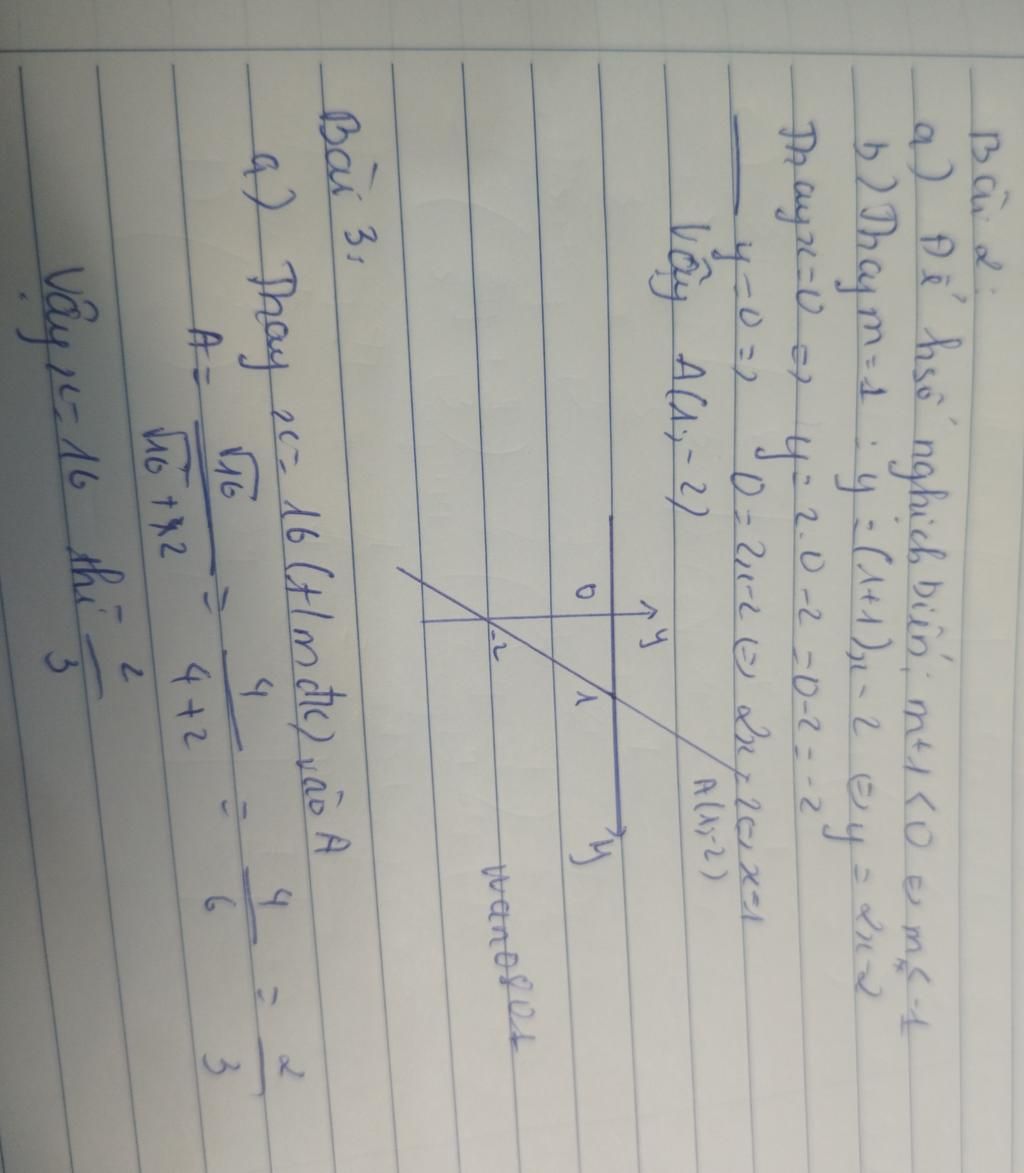 Bài 2:
a) Để hsố nghịch biến: m+1 < 0 ⇔ m < -1
b) Thay m = 1 : y = (1+1)x - 2 ⇔ y = 2x - 2
Thay x = 0 ⇒ y = 2.0 - 2 = 0 - 2 = -2
— y = 0 ⇒ 0 = 2x - 2 ⇔ 2x = 2 ⇔ x = 1
Vậy A(1;-2)
A(1;-2)
y
0 1 y
-2
wano801
Bài 3:
a) Thay x = 16 (t/m đk) vào A
A = √16 / (√16 + 2) = 4 / (4+2) = 4/6 = 2/3
Vậy x = 16 thì 2/3